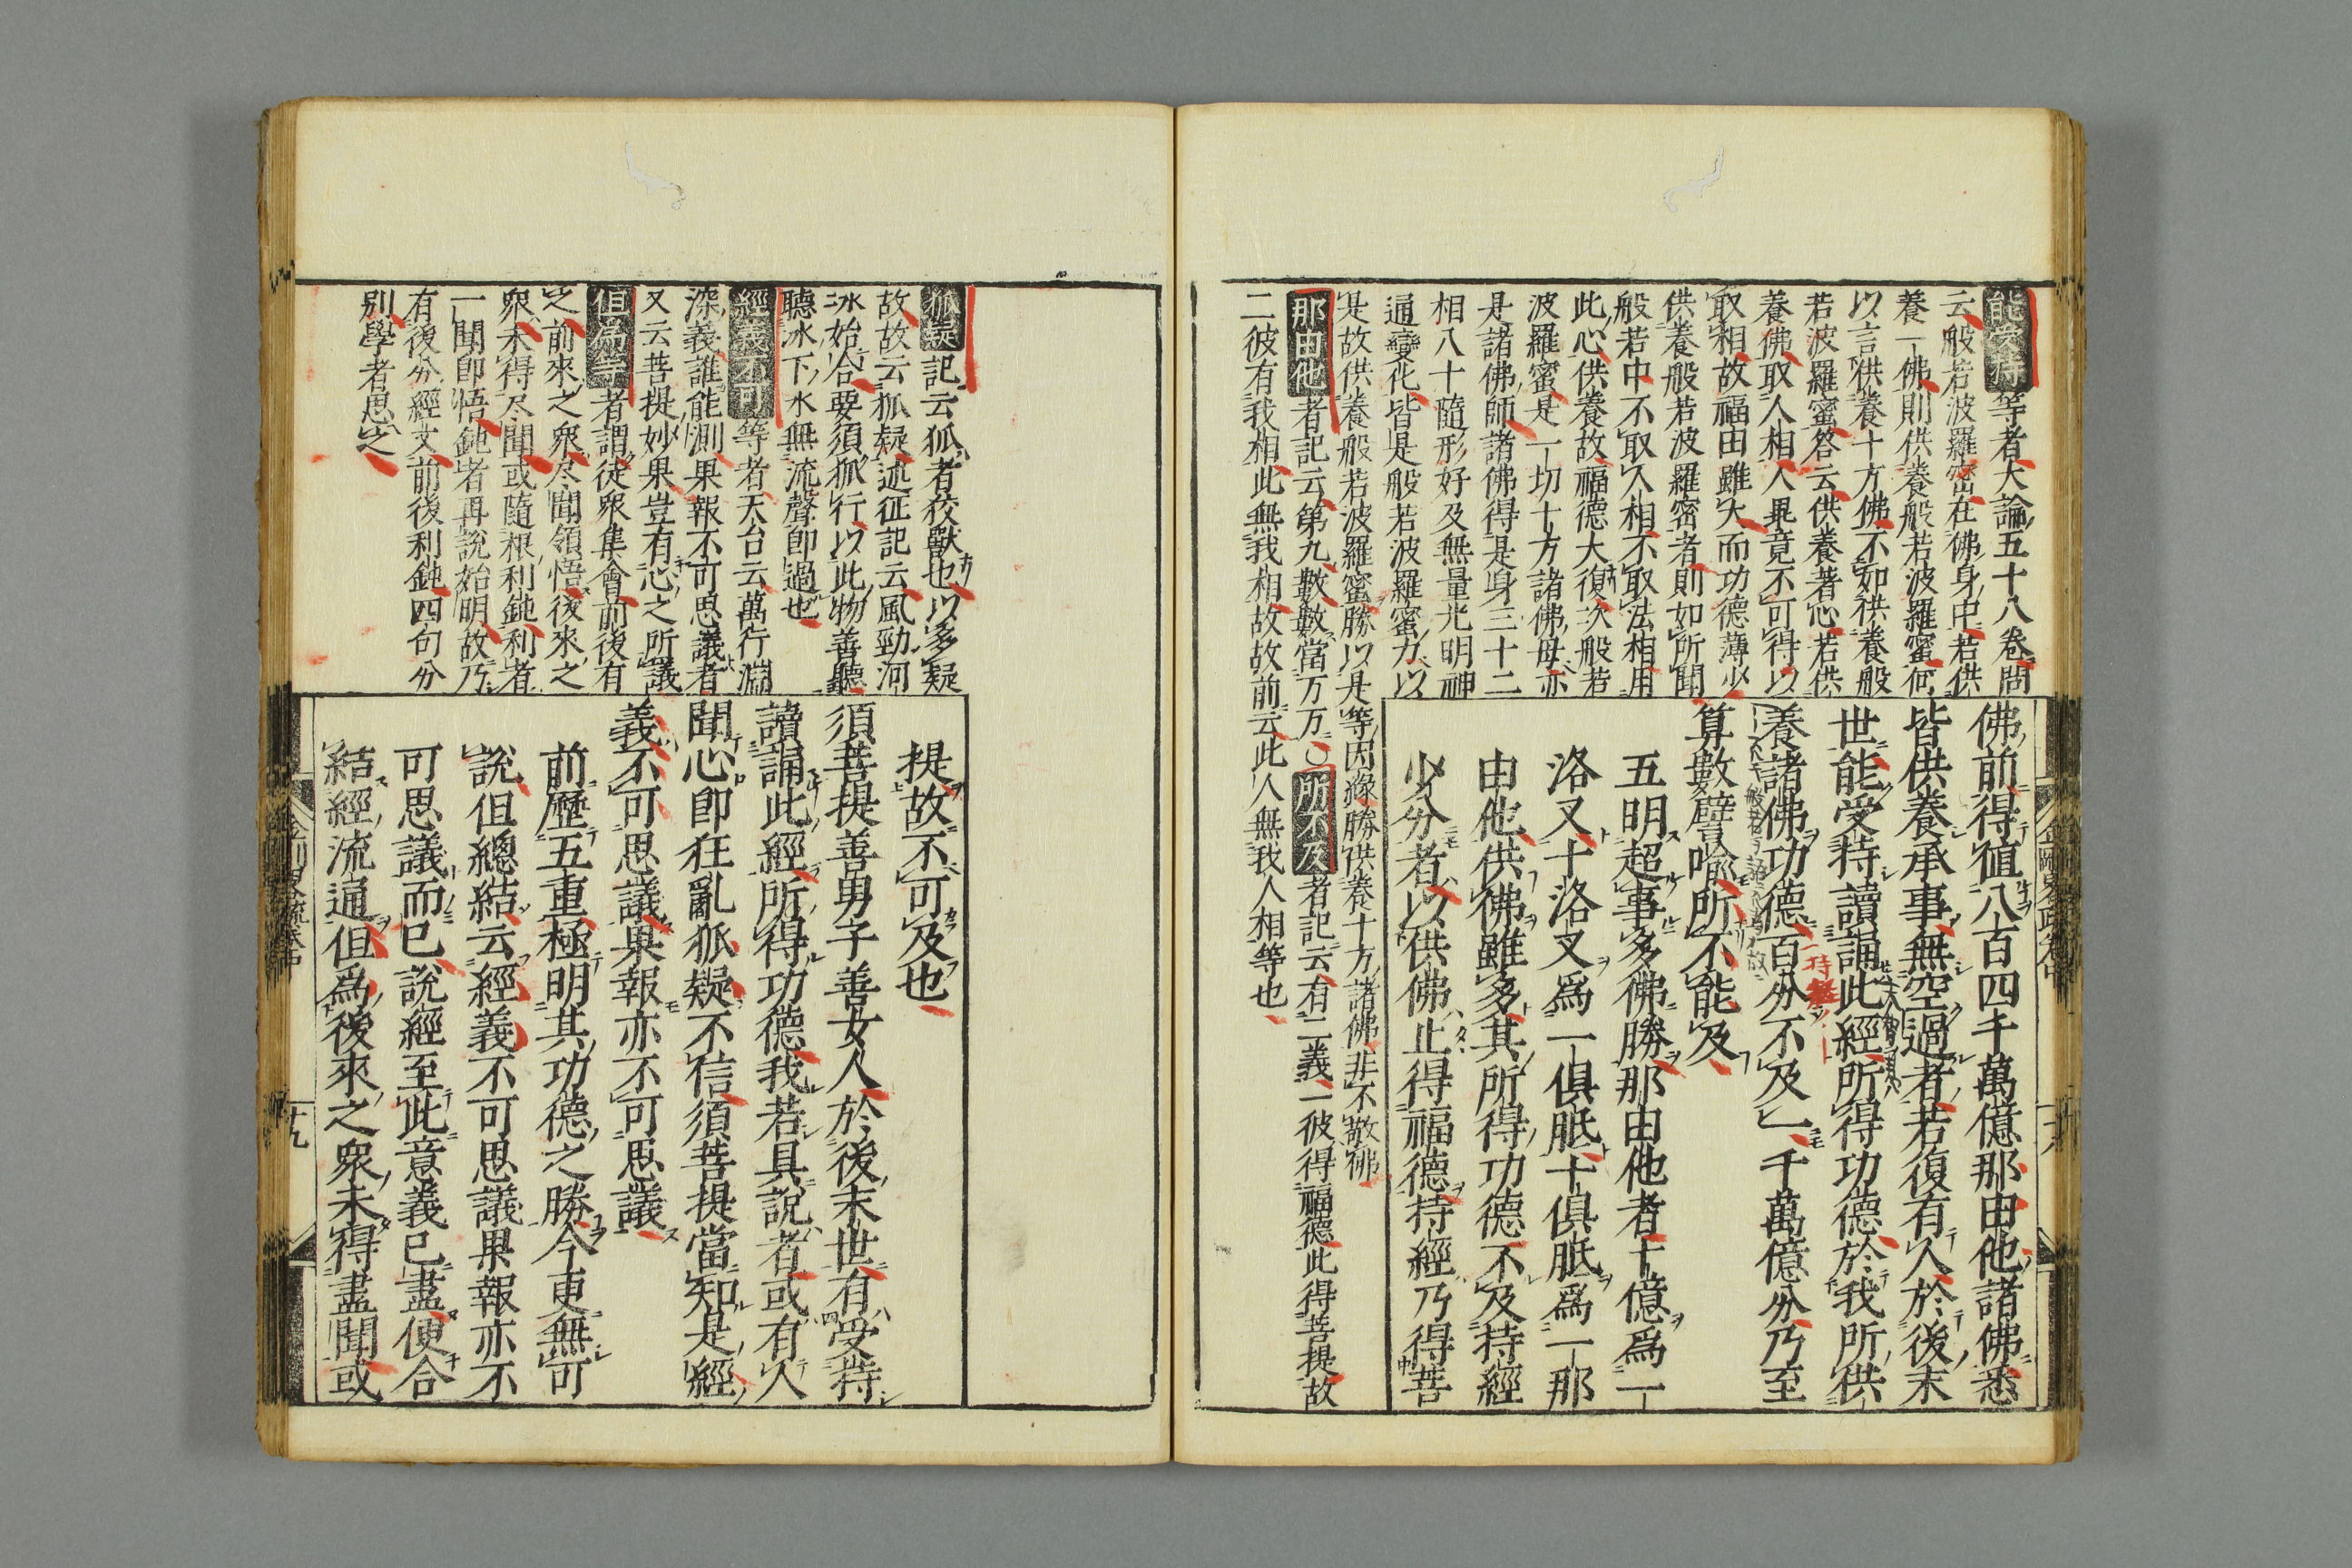 能受持等者大論五十八卷問
云般若波羅蜜在佛身中若供
養一佛則供養般若波羅蜜何
以言供養十方佛不如供養般
若波羅蜜答云供養著心若供
養佛取人相人畢竟不可得以
取相故福田雖大而功德薄少
供養般若波羅密者則如所聞
般若中不取人相不取法相用
此心供養故福德大復次般若
波羅蜜是一切十方諸佛母亦
是諸佛師諸佛得是身三十二
相八十隨形好及無量光明神
通變化皆是般若波羅蜜力以
是故供養般若波羅蜜勝以是等因緣勝供養十方諸佛非不敬佛
那由他者記云第九數數當万万○所不及者記云有二義一彼得福德此得菩提故
二彼有我相此無我相故故前云此人無我人相等也
佛前得値八百四千萬億那由他諸佛悉
皆供養承事無空過者若復有人於後末
世能受持讀誦此經所得功德於我所供
養諸佛功德百分不及一千萬億分乃至
算數譬喩所不能及
五明超事多佛勝那由他者十億爲一
洛叉十洛叉爲一俱胝十俱胝爲一那
由他供佛雖多其所得功德不及持經
少分者以供佛止得福德持經乃得菩
金剛畧疏卷中
十八
狐疑記云狐者狡獸也以多疑
故故云狐疑述征記云風勁河
冰始合要須狐行以此物善聽
聽冰下水無流聲即過也
經義不可等者天台云萬行淵
深義誰能測果報不可思議者
又云菩提妙果豈有心之所議
但爲等者謂徒衆集會前後有
之前來之衆尽聞領悟後來之
衆未得尽聞或隨根利鈍利者
一聞即悟鈍者再說始明故乃
有後分經文前後利鈍四句分
别學者思之
提故不可及也
須菩提善男子善女人於後末世有受持
讀誦此經所得功德我若具說者或有人
聞心即狂亂狐疑不信須菩提當知是經
義不可思議果報亦不可思議
前歷五重極明其功德之勝今更無可
說但總結云經義不可思議果報亦不
可思議而已說經至此意義已盡便合
結經流通但爲後來之衆未得盡聞或
金剛畧疏卷中
十九